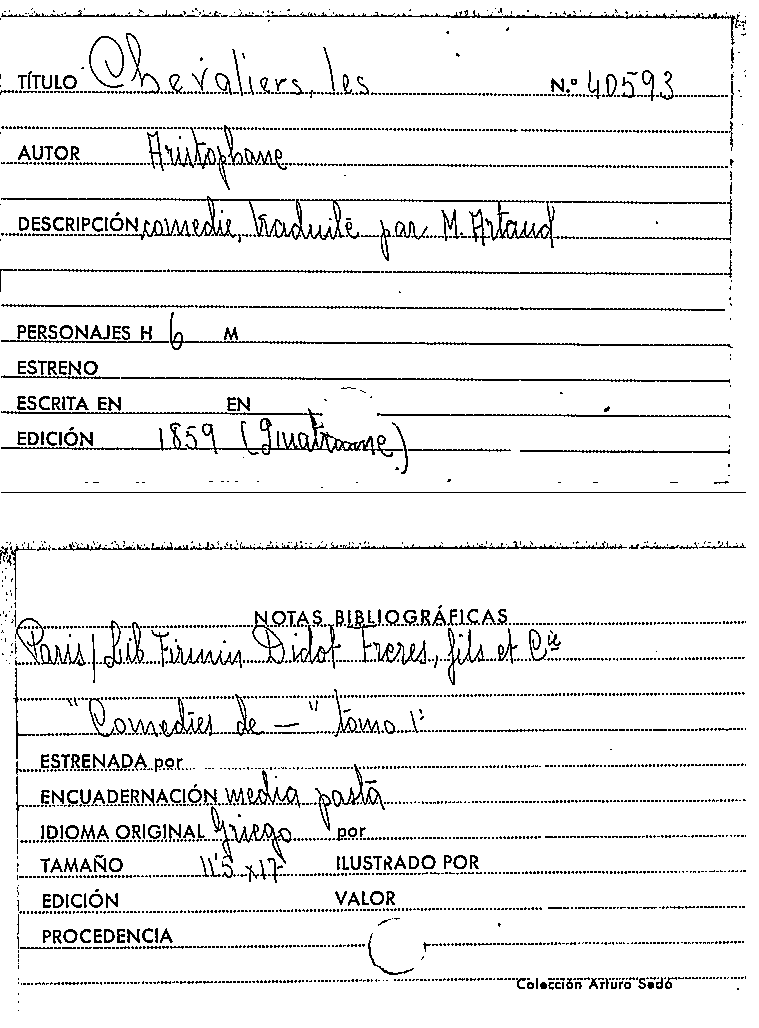 TÍTULO Chevaliers, les N.º 40593
AUTOR Aristophane
DESCRIPCIÓN comedie, traduite par M. Artaud
PERSONAJES H 6 M
ESTRENO
ESCRITA EN EN
EDICIÓN 1859 (
NOTAS BIBLIOGRÁFICAS
Paris / Lib Firmin Didot Freres, fils et Cie
"Comedies de — " tomo 1º
ESTRENADA por
ENCUADERNACIÓN media pasta
IDIOMA ORIGINAL Griego por
TAMAÑO 11'5 x 17 ILUSTRADO POR
EDICIÓN VALOR
PROCEDENCIA
Colección Arturo Sedó